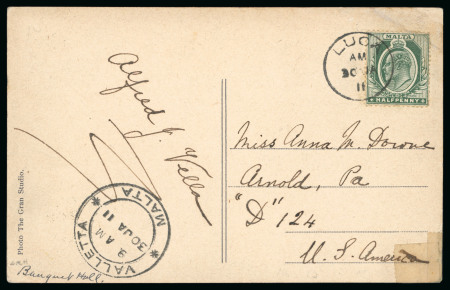 LUCA
AM
30 JA
11
MALTA
HALFPENNY
Alfred J. Vella
Miss Anna M. Downe
Arnold, Pa
"D" 124
U. S. America
VALLETTA
9 AM
30 JA 11
MALTA
Photo The Gran Studio.
Banquet Hall.